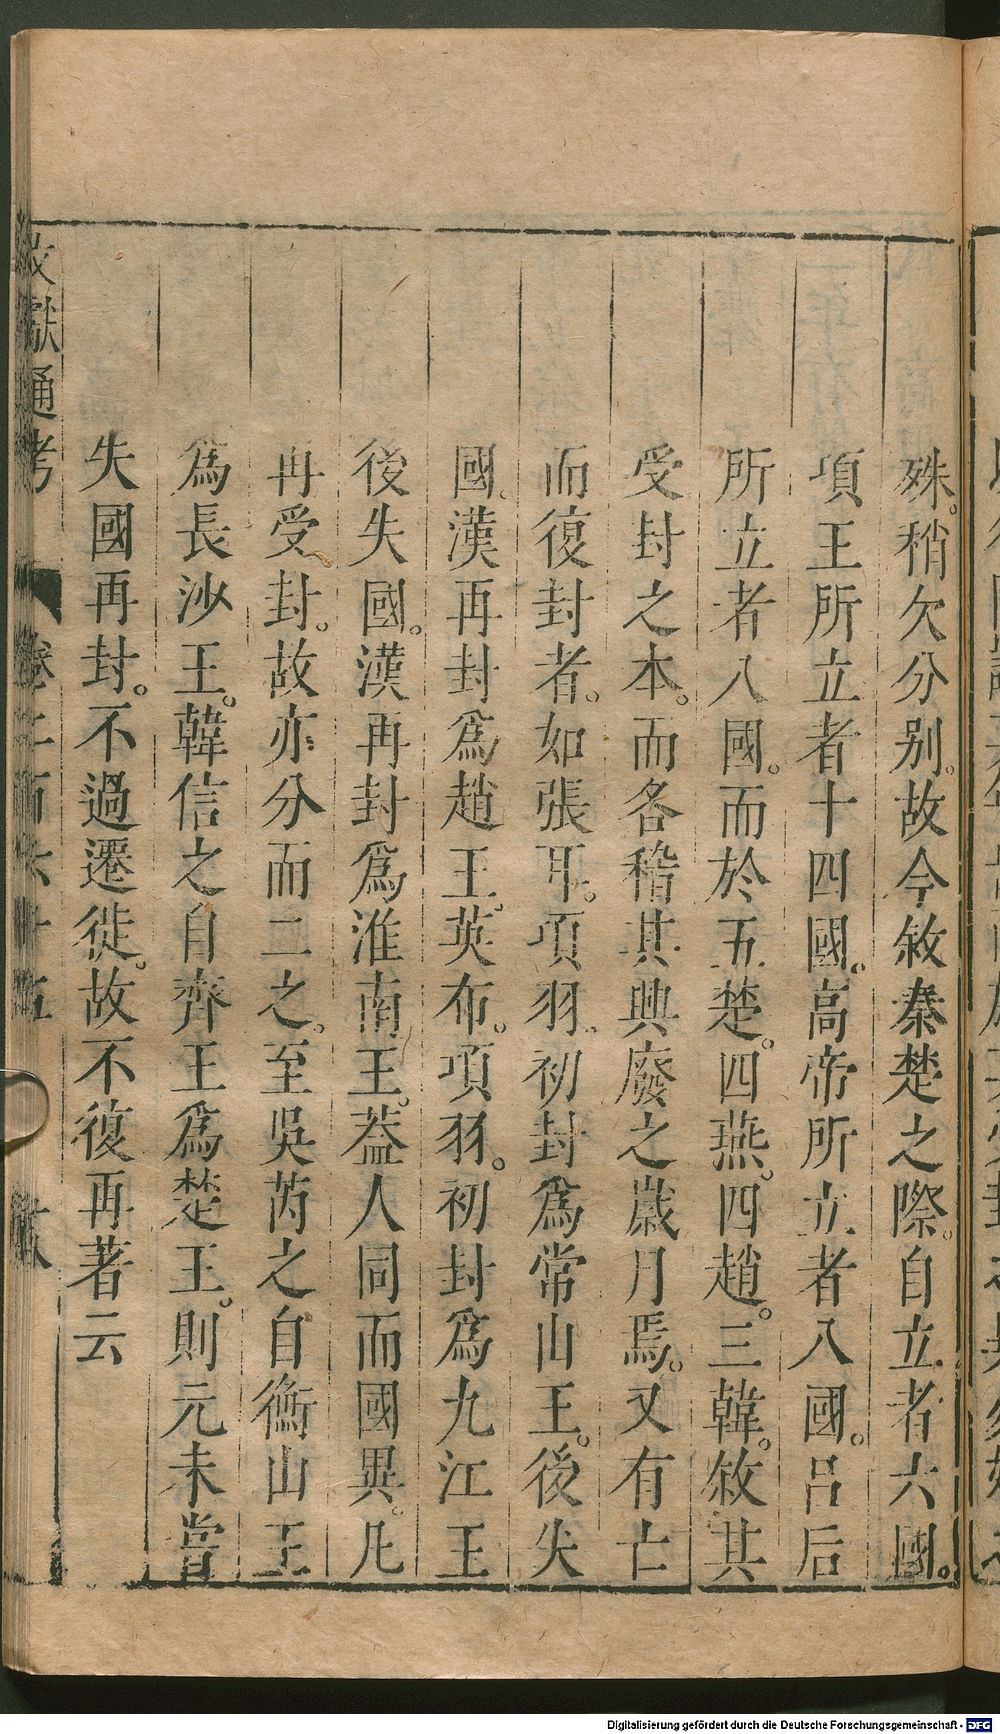 殊。稍欠分别。故今敘秦楚之際。自立者六國。
項王所立者十四國。高帝所立者八國。呂后
所立者八國。而於五楚。四燕。四趙。三韓。敘其
受封之本。而各稽其興廢之歲月焉。又有亡
而復封者。如張耳。項羽。初封爲常山王。後失
國。漢再封爲趙王。英布。項羽。初封爲九江王
後失國。漢再封爲淮南王。葢人同而國異。凡
再受封。故亦分而二之。至吳芮之自衡山王
爲長沙王。韓信之自齊王爲楚王。則元未嘗
失國再封。不過遷徙。故不復再著云
文獻通考 卷二百六十五
Digitalisierung gefördert durch die Deutsche Forschungsgemeinschaft - DFG